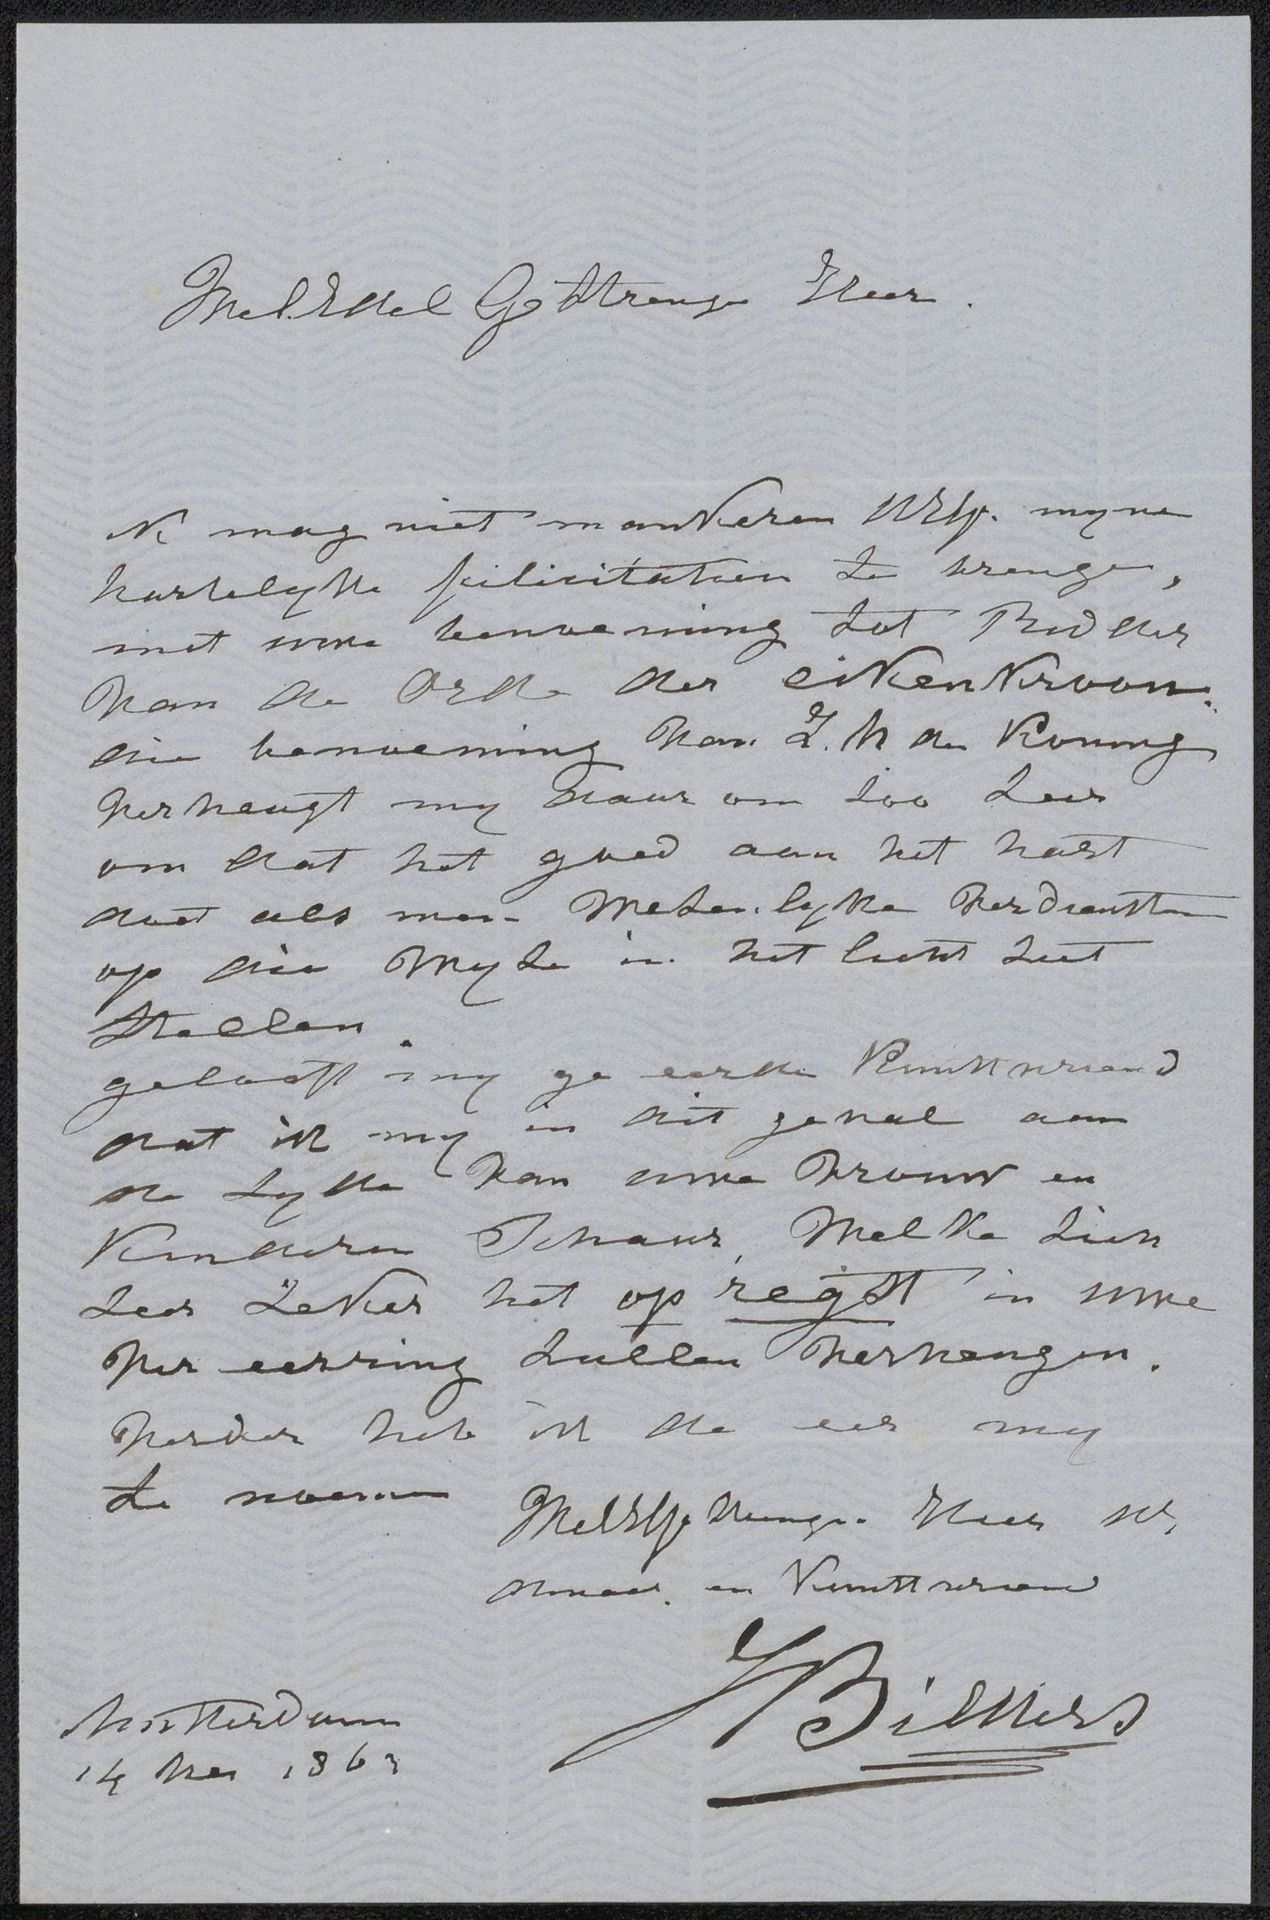 WelEdel Gestrenge Heer.
Ik mag niet mankeren UEG. myne
hartelyke felicitatien te brenge,
met uwe benoeming tot Ridder
van de Orde der eikenkroon.
die benoeming van Z. M de Koning
verheugt my daar om zoo zeer
om dat het goed aan het hart
doet als men Wezenlyke verdiensten
op die Wyze in het licht ziet
stellen.
gelooft my ge eerde Kunstvriend
dat ik my in dit geval aan
de zyde van uwe vrouw en
kinderen Schaar, Welke zich
zeer zeker het op regtst in uwe
ver eerring zullen verheugen.
verder heb ik de eer my
te noemen
WelEdGestrenge Heer UE.
dienaar en Kunstvriend
Bilders
Amsterdam
14 1863